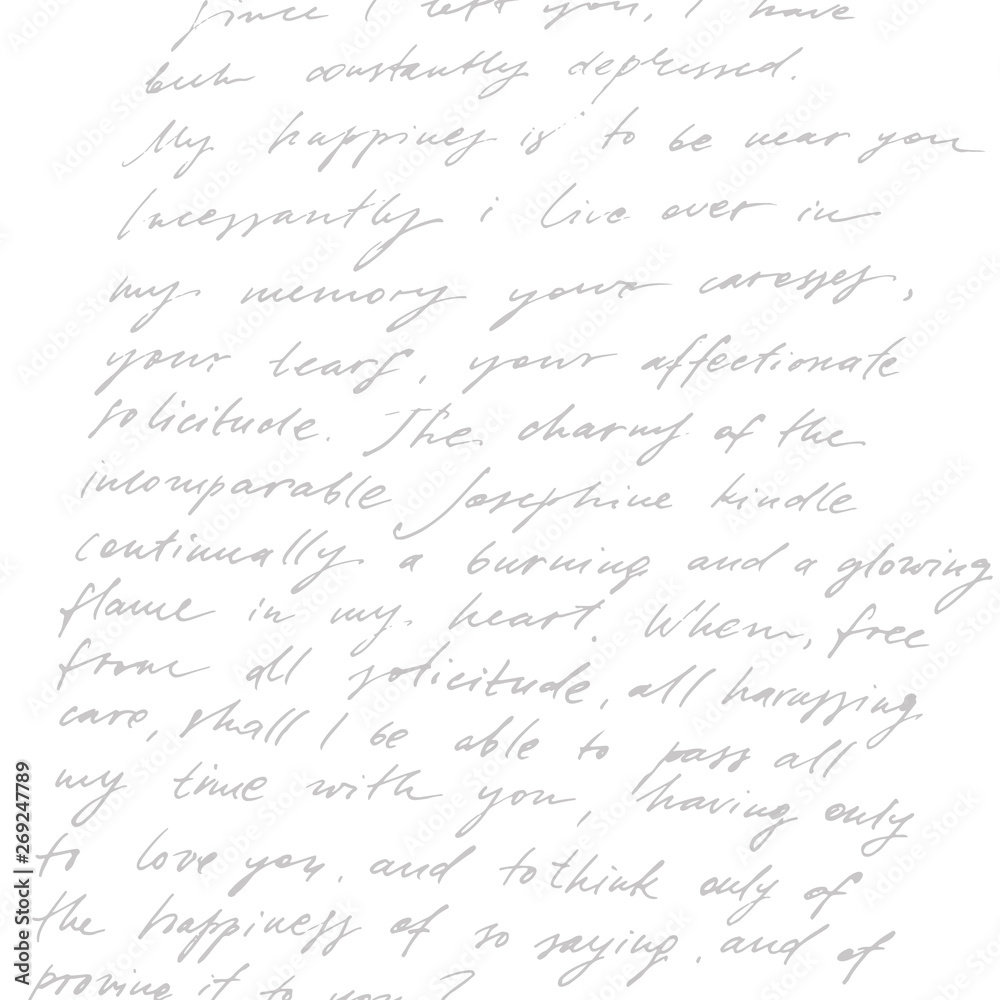 Since I left you, I have
been constantly depressed.
My happines is to be near you
Incessantly i live over in
my memory your caresses,
your tears, your affectionate
solicitude. The charms of the
incomparable Josephine kindle
continually a burning and a glowing
flame in my heart. When, free
from all solicitude, all harassing
care, shall I be able to pass all
my time with you, having only
to love you, and to think only of
the happiness of so saying, and of
proving it to you?
Adobe Stock | #269247789